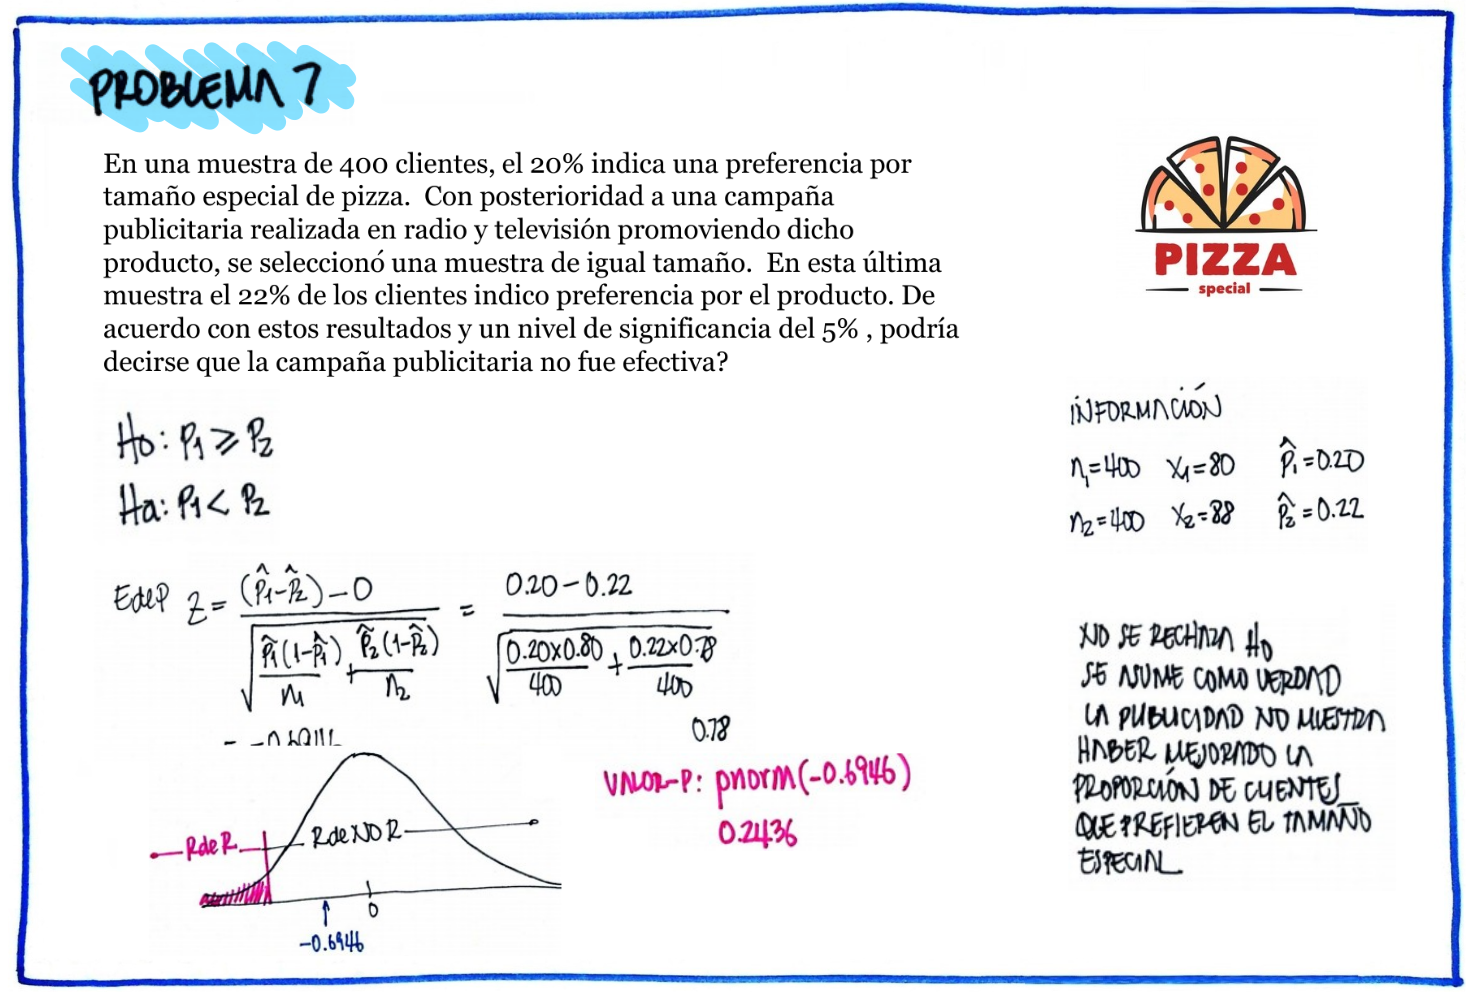 PROBLEMA 7
En una muestra de 400 clientes, el 20% indica una preferencia por
tamaño especial de pizza. Con posterioridad a una campaña
publicitaria realizada en radio y televisión promoviendo dicho
producto, se seleccionó una muestra de igual tamaño. En esta última
muestra el 22% de los clientes indico preferencia por el producto. De
acuerdo con estos resultados y un nivel de significancia del 5% , podría
decirse que la campaña publicitaria no fue efectiva?
PIZZA
special
Ho: P₁ ≥ P₂
Ha: P₁ < P₂
INFORMACIÓN
n₁=400 X₁=80 p̂₁=0.20
n₂=400 X₂=88 p̂₂=0.22
EdeP Z = (p̂₁-p̂₂)-0 / √(p̂₁(1-p̂₁)/n₁ + p̂₂(1-p̂₂)/n₂) = 0.20-0.22 / √(0.20x0.80/400 + 0.22x0.78/400)
0.78
VALOR-P: pnorm(-0.6946)
0.2436
RdeR
RdeNOR
0
-0.6946
NO SE RECHAZA Ho
SE ASUME COMO VERDAD
LA PUBLICIDAD NO MUESTRA
HABER MEJORADO LA
PROPORCIÓN DE CLIENTES
QUE PREFIEREN EL TAMAÑO
ESPECIAL